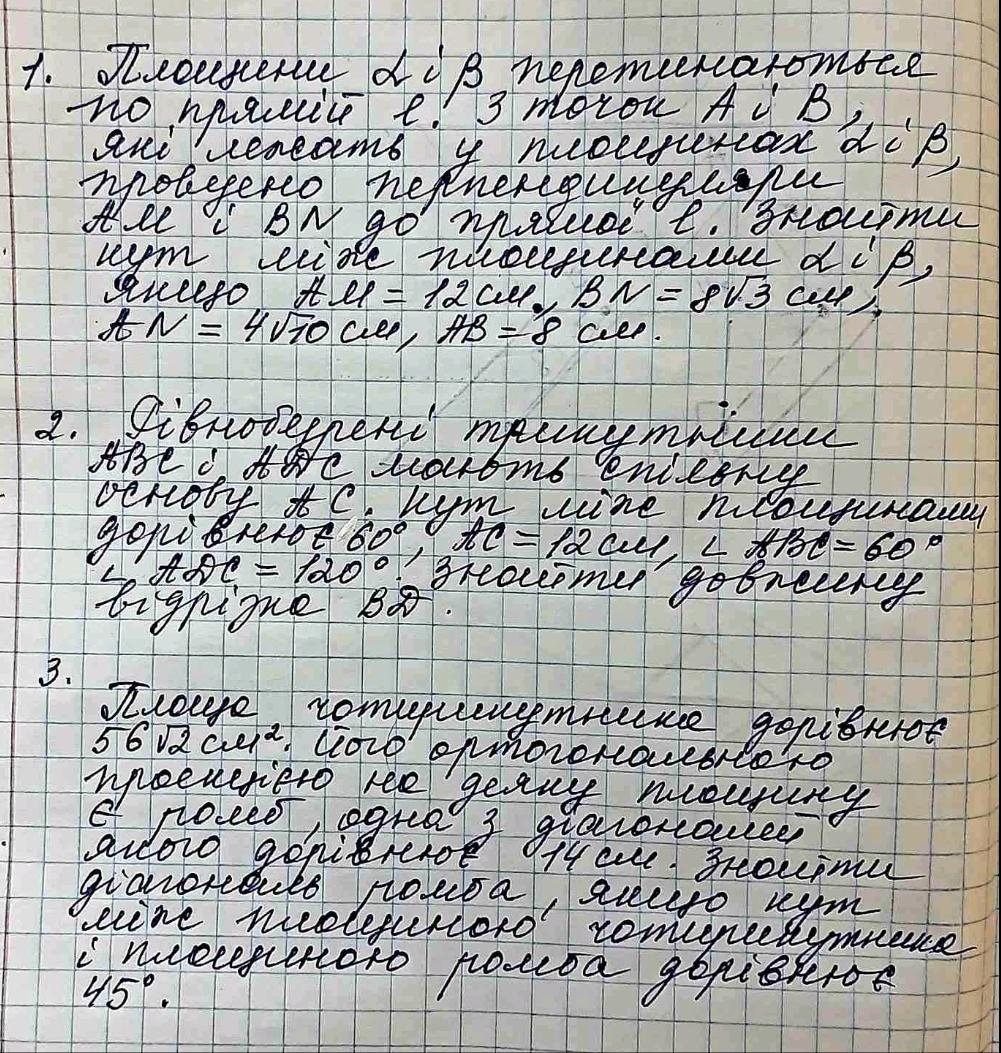 1. Площини α і β перетинаються
по прямій l. З точок A і B,
які лежать у площинах α і β,
проведено перпендикуляри
AM і BN до прямої l. Знайти
кут між площинами α і β,
якщо AM = 12 см, BN = 8√3 см,
AN = 4√10 см, AB = 8 см.
2. Рівнобедрені трикутники
ABC і ADC мають спільну
основу AC. Кут між площинами
дорівнює 60°, AC = 12 см, ∠ ABC = 60°
∠ ADC = 120°. Знайти довжину
відрізка BD.
3.
Площа чотирикутника дорівнює
56√2 см². Його ортогональною
проекцією на деяку площину
є ромб, одна з діагоналей
якого дорівнює 14 см. Знайти
діагональ ромба, якщо кут
між площиною чотирикутника
і площиною ромба дорівнює
45°.